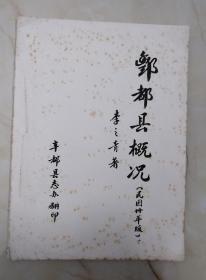 酆都县概况（民国卅年版）
李之青著
丰都县志办翻印